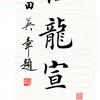 龍宣
田英章題